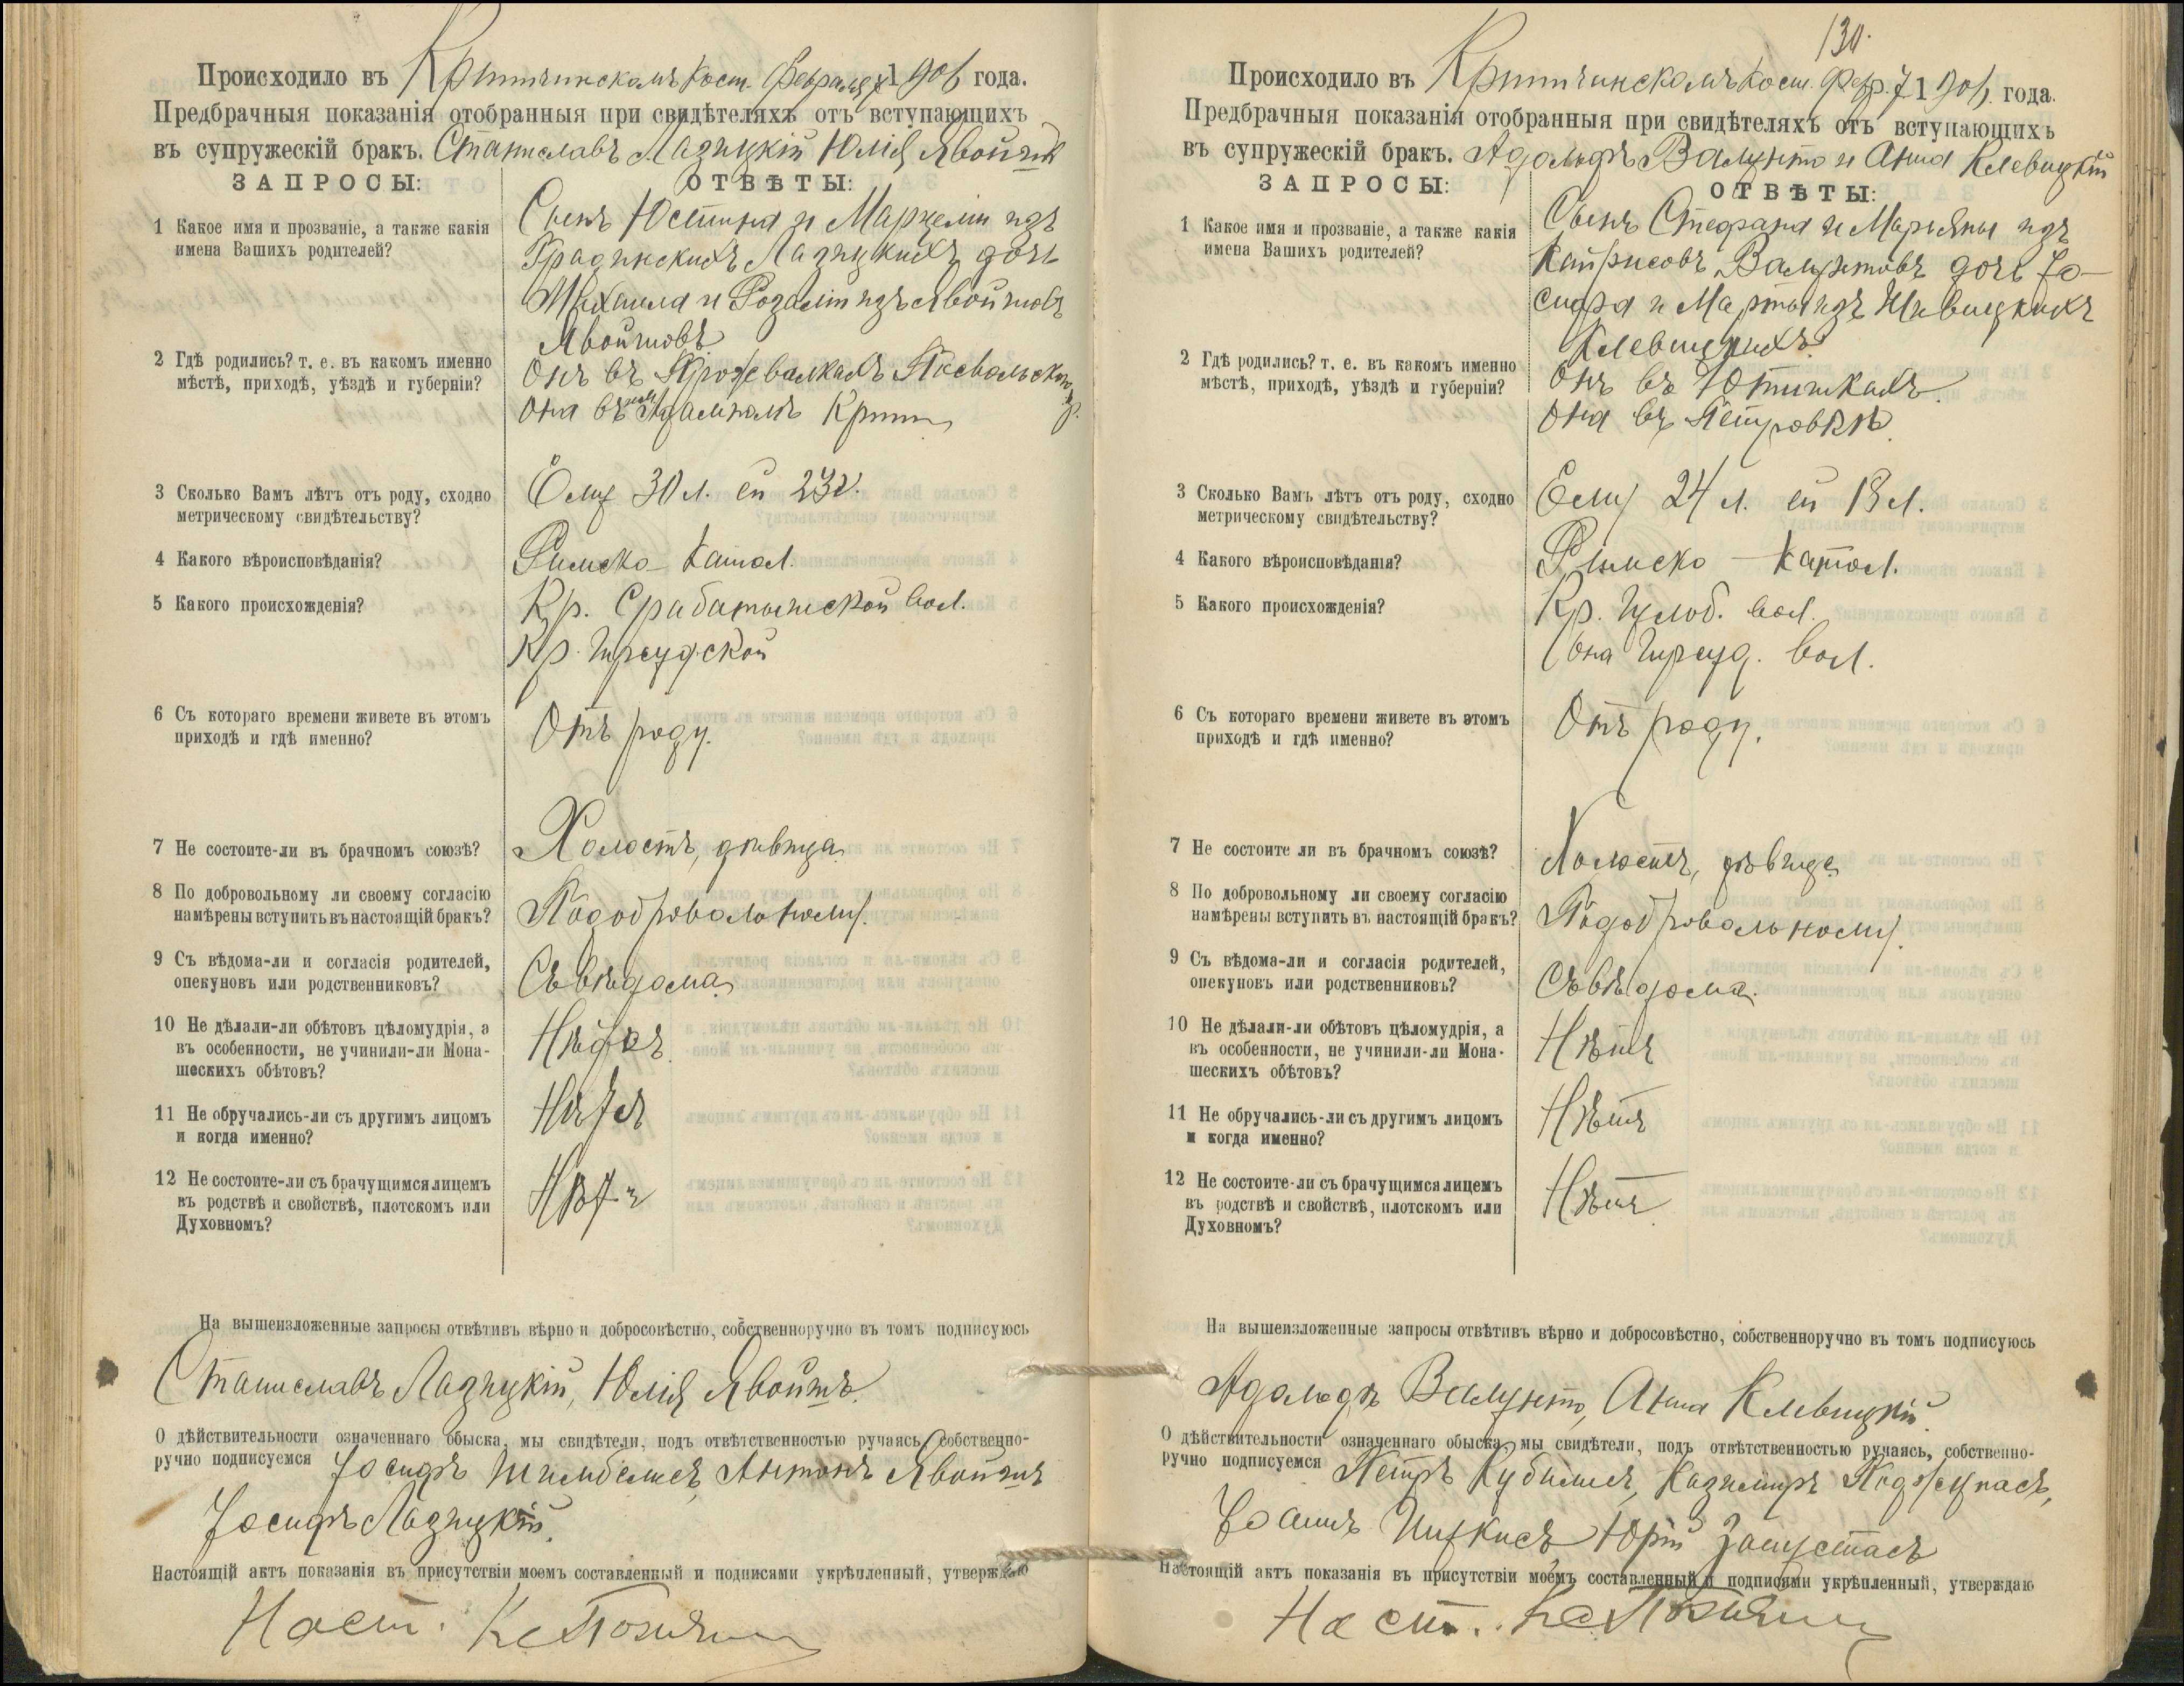 Происходило въ Криничинскомъ кост. Февраля 7 1901 года.
Предбрачныя показанія отобранныя при свидѣтеляхъ отъ вступающихъ
въ супружескій бракъ. Станиславъ Лазицкій Юлія
ЗАПРОСЫ: ОТВѢТЫ:
1 Какое имя и прозваніе, а также какія
имена Вашихъ родителей?
Сынъ Юстина и Марцели изъ
Лазицкихъ дочь
Михаила и Розаліи изъ
2 Гдѣ родились? т. е. въ какомъ именно
мѣстѣ, приходѣ, уѣздѣ и губерніи?
Онъ въ
Она въ
3 Сколько Вамъ лѣтъ отъ роду, сходно
метрическому свидѣтельству?
Ему 30 л. ей 23 г.
4 Какого вѣроисповѣданія?
Римско-Катол.
5 Какого происхожденія?
Кр. вол.
Кр. Гирсудской
6 Съ котораго времени живете въ этомъ
приходѣ и гдѣ именно?
Отъ роду.
7 Не состоите-ли въ брачномъ союзѣ?
Холостъ, дѣвица
8 По добровольному ли своему согласію
намѣрены вступить въ настоящій бракъ?
По добровольному.
9 Съ вѣдома-ли и согласія родителей,
опекуновъ или родственниковъ?
Съ вѣдома
10 Не дѣлали-ли обѣтовъ цѣломудрія, а
въ особенности, не учинили-ли Мона-
шескихъ обѣтовъ?
Нѣтъ
11 Не обручались-ли съ другимъ лицомъ
и когда именно?
Нѣтъ
12 Не состоите-ли съ брачущимся лицемъ
въ родствѣ и свойствѣ, плотскомъ или
Духовномъ?
Нѣтъ
На вышеизложенные запросы отвѣтивъ вѣрно и добросовѣстно, собственноручно въ томъ подписуюсь
Станиславъ Лазицкій, Юлія
О дѣйствительности означеннаго обыска, мы свидѣтели, подъ отвѣтственностью ручаясь, собственно-
ручно подписуемся Іосифъ Антонъ
Іосифъ Лазицкій.
Настоящій актъ показанія въ присутствіи моемъ составленный и подписями укрѣпленный, утверждаю
Наст.
130.
Происходило въ Криничинскомъ кост. Фев. 7 1901 года.
Предбрачныя показанія отобранныя при свидѣтеляхъ отъ вступающихъ
въ супружескій бракъ. Адольфъ Валунто и Анна Клевицкій
ЗАПРОСЫ: ОТВѢТЫ:
1 Какое имя и прозваніе, а также какія
имена Вашихъ родителей?
Сынъ Стефана и Марьяны изъ
Кайрисовъ Валунтовъ дочь Іо-
сифа и Марты изъ
Клевицкихъ
2 Гдѣ родились? т. е. въ какомъ именно
мѣстѣ, приходѣ, уѣздѣ и губерніи?
Онъ въ Ютишкахъ
Она въ Петровкѣ
3 Сколько Вамъ лѣтъ отъ роду, сходно
метрическому свидѣтельству?
Ему 24 л. ей 18 л.
4 Какого вѣроисповѣданія?
Римско-Катол.
5 Какого происхожденія?
Кр. вол.
Она Гирсуд. вол.
6 Съ котораго времени живете въ этомъ
приходѣ и гдѣ именно?
Отъ роду.
7 Не состоите ли въ брачномъ союзѣ?
Холостъ, дѣвица
8 По добровольному ли своему согласію
намѣрены вступить въ настоящій бракъ?
По добровольному.
9 Съ вѣдома-ли и согласія родителей,
опекуновъ или родственниковъ?
Съ вѣдома.
10 Не дѣлали-ли обѣтовъ цѣломудрія, а
въ особенности, не учинили-ли Мона-
шескихъ обѣтовъ?
Нѣтъ
11 Не обручались-ли съ другимъ лицомъ
и когда именно?
Нѣтъ
12 Не состоите-ли съ брачущимся лицемъ
въ родствѣ и свойствѣ, плотскомъ или
Духовномъ?
Нѣтъ
На вышеизложенные запросы отвѣтивъ вѣрно и добросовѣстно, собственноручно въ томъ подписуюсь
Адольфъ Валунто, Анна Клевицкій
О дѣйствительности означеннаго обыска, мы свидѣтели, подъ отвѣтственностью ручаясь, собственно-
ручно подписуемся Петръ Казимиръ
Іоаннъ Юрій
Настоящій актъ показанія въ присутствіи моемъ составленный и подписями укрѣпленный, утверждаю
Наст.